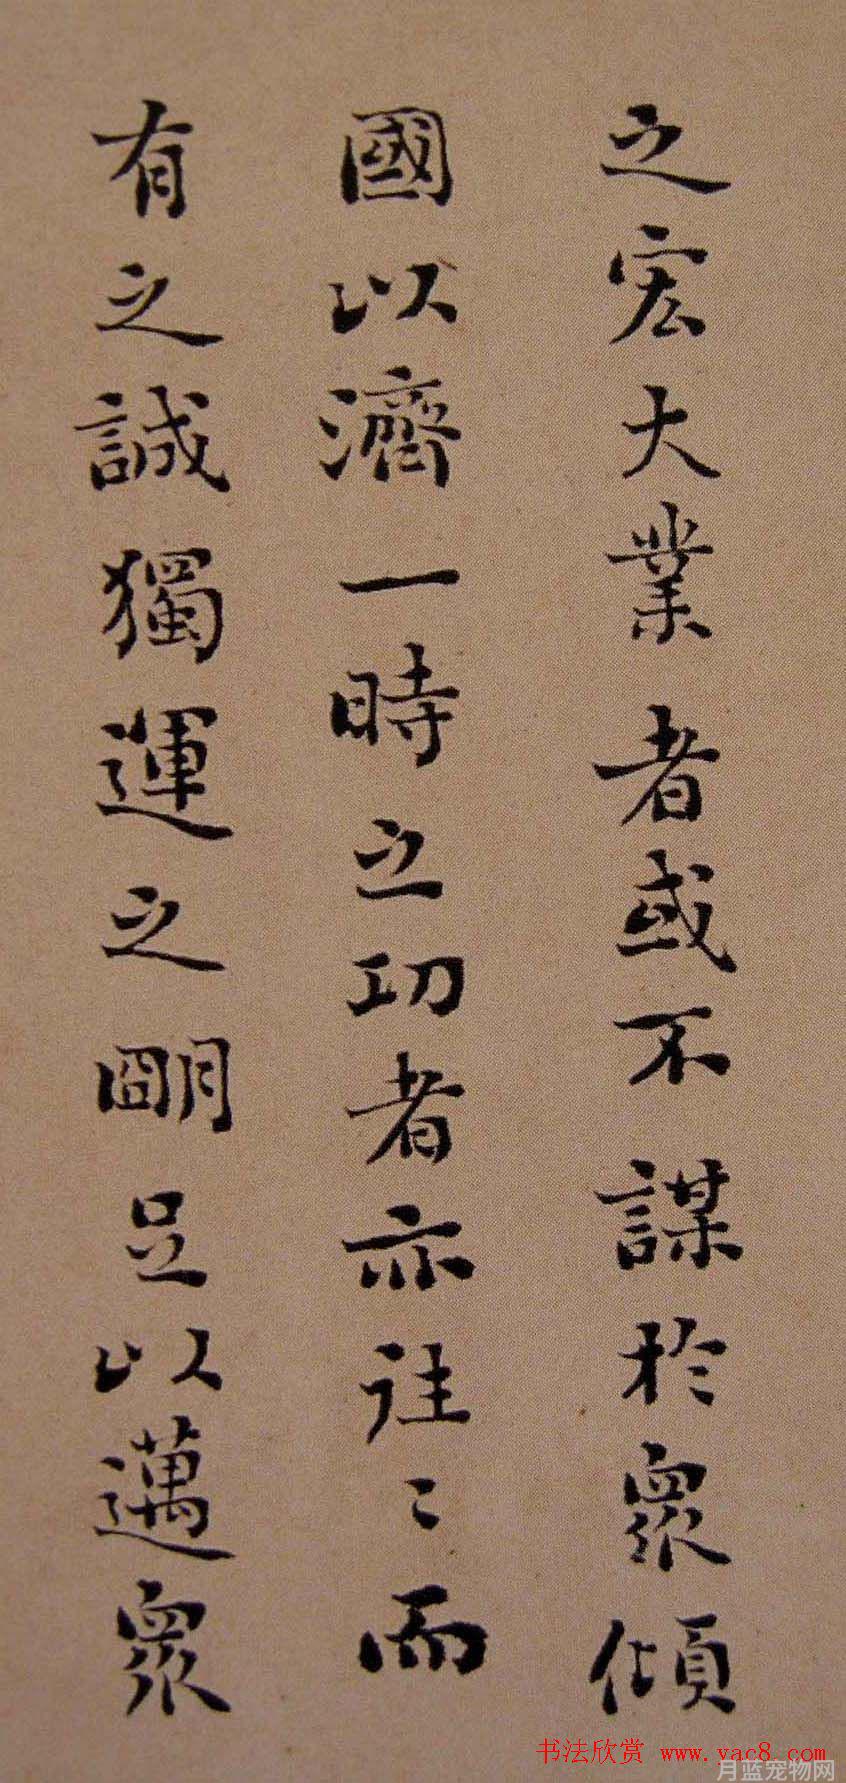 之宏大業者或不謀於衆傾
國以濟一時之功者亦往〻而
有之誠獨運之朙足以邁衆
书法欣赏 www.yac8.com
月蓝宠物网